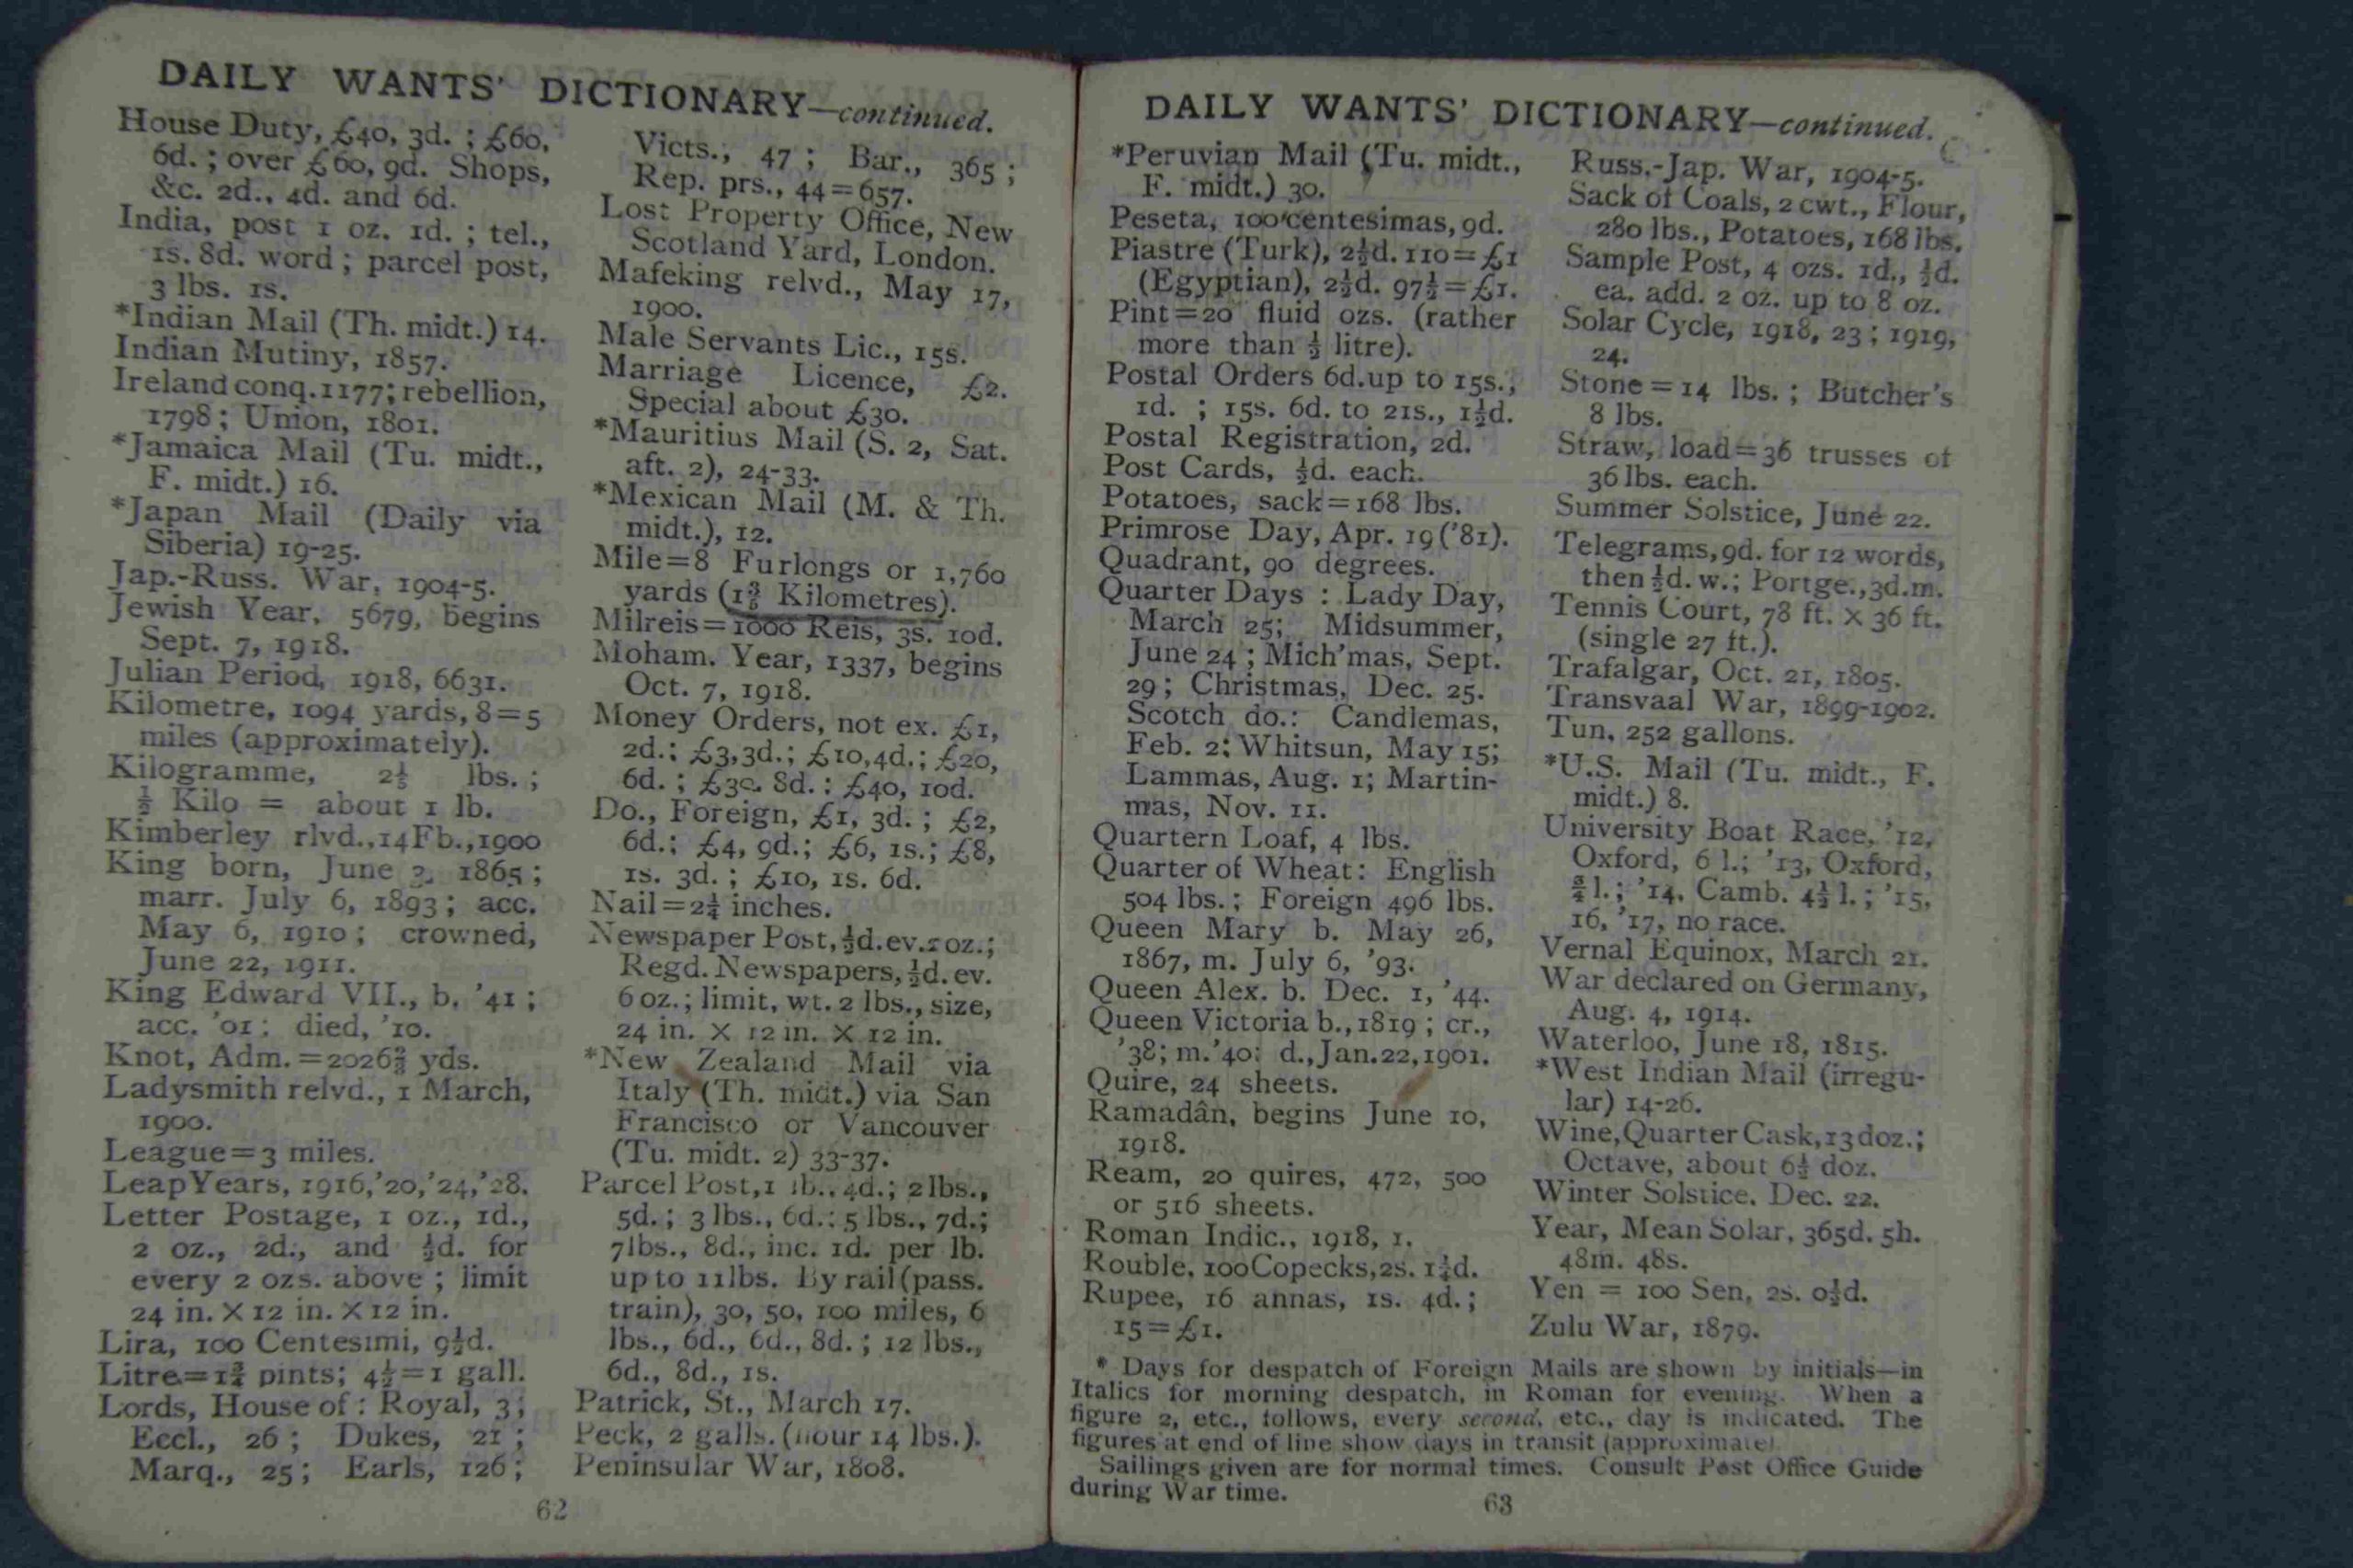 DAILY WANTS' DICTIONARY—continued.
House Duty, £40, 3d. ; £60,
6d. ; over £60, 9d. Shops,
&c. 2d., 4d. and 6d.
India, post 1 oz. 1d. ; tel.,
1s. 8d. word ; parcel post,
3 lbs. 1s.
*Indian Mail (Th. midt.) 14.
Indian Mutiny, 1857.
Ireland conq. 1177; rebellion,
1798; Union, 1801.
*Jamaica Mail (Tu. midt.,
F. midt.) 16.
*Japan Mail (Daily via
Siberia) 19-25.
Jap.-Russ. War, 1904-5.
Jewish Year, 5679, begins
Sept. 7, 1918.
Julian Period, 1918, 6631.
Kilometre, 1094 yards, 8=5
miles (approximately).
Kilogramme, 2⅕ lbs. ;
½ Kilo = about 1 lb.
Kimberley rlvd., 14 Fb., 1900
King born, June 3, 1865 ;
marr. July 6, 1893 ; acc.
May 6, 1910 ; crowned,
June 22, 1911.
King Edward VII., b. '41 ;
acc. '01 ; died, '10.
Knot, Adm. =2026⅔ yds.
Ladysmith relvd., 1 March,
1900.
League=3 miles.
Leap Years, 1916, '20, '24, '28.
Letter Postage, 1 oz., 1d.,
2 oz., 2d., and ½d. for
every 2 ozs. above ; limit
24 in. X 12 in. X 12 in.
Lira, 100 Centesimi, 9½d.
Litre=1¾ pints; 4½=1 gall.
Lords, House of : Royal, 3 ;
Eccl., 26 ; Dukes, 21 ;
Marq., 25 ; Earls, 126 ;
Victs., 47 ; Bar., 365 ;
Rep. prs., 44=657.
Lost Property Office, New
Scotland Yard, London.
Mafeking relvd., May 17,
1900.
Male Servants Lic., 15s.
Marriage Licence, £2.
Special about £30.
*Mauritius Mail (S. 2, Sat.
aft. 2), 24-33.
*Mexican Mail (M. & Th.
midt.), 12.
Mile=8 Furlongs or 1,760
yards (1⅗ Kilometres).
Milreis=1000 Reis, 3s. 10d.
Moham. Year, 1337, begins
Oct. 7, 1918.
Money Orders, not ex. £1,
2d.; £3, 3d.; £10, 4d.; £20,
6d. ; £30, 8d. ; £40, 10d.
Do., Foreign, £1, 3d. ; £2,
6d.; £4, 9d.; £6, 1s.; £8,
1s. 3d. ; £10, 1s. 6d.
Nail=2¼ inches.
Newspaper Post, ½d. ev. 2 oz.;
Regd. Newspapers, ½d. ev.
6 oz. ; limit, wt. 2 lbs., size,
24 in. X 12 in. X 12 in.
*New Zealand Mail via
Italy (Th. midt.) via San
Francisco or Vancouver
(Tu. midt. 2) 33-37.
Parcel Post, 1 lb., 4d.; 2 lbs.,
5d. ; 3 lbs., 6d. ; 5 lbs., 7d.;
7 lbs., 8d., inc. 1d. per lb.
up to 11 lbs. By rail (pass.
train), 30, 50, 100 miles, 6
lbs., 6d., 6d., 8d. ; 12 lbs.,
6d., 8d., 1s.
Patrick, St., March 17.
Peck, 2 galls. (flour 14 lbs.).
Peninsular War, 1808.
62
DAILY WANTS' DICTIONARY—continued.
*Peruvian Mail (Tu. midt.,
F. midt.) 30.
Peseta, 100 centesimas, 9d.
Piastre (Turk), 2½d. 110=£1
(Egyptian), 2½d. 97½=£1.
Pint=20 fluid ozs. (rather
more than ½ litre).
Postal Orders 6d. up to 15s.,
1d. ; 15s. 6d. to 21s., 1½d.
Postal Registration, 2d.
Post Cards, ½d. each.
Potatoes, sack=168 lbs.
Primrose Day, Apr. 19 ('81).
Quadrant, 90 degrees.
Quarter Days : Lady Day,
March 25; Midsummer,
June 24 ; Mich'mas, Sept.
29 ; Christmas, Dec. 25.
Scotch do.: Candlemas,
Feb. 2; Whitsun, May 15;
Lammas, Aug. 1; Martin-
mas, Nov. 11.
Quartern Loaf, 4 lbs.
Quarter of Wheat: English
504 lbs. ; Foreign 496 lbs.
Queen Mary b. May 26,
1867, m. July 6, '93.
Queen Alex. b. Dec. 1, '44.
Queen Victoria b., 1819 ; cr.,
'38; m. '40; d., Jan. 22, 1901.
Quire, 24 sheets.
Ramadân, begins June 10,
1918.
Ream, 20 quires, 472, 500
or 516 sheets.
Roman Indic., 1918, 1.
Rouble, 100 Copecks, 2s. 1¼d.
Rupee, 16 annas, 1s. 4d. ;
15=£1.
Russ.-Jap. War, 1904-5.
Sack of Coals, 2 cwt., Flour,
280 lbs., Potatoes, 168 lbs.
Sample Post, 4 ozs. 1d., ½d.
ea. add. 2 oz. up to 8 oz.
Solar Cycle, 1918, 23 ; 1919,
24.
Stone=14 lbs. ; Butcher's
8 lbs.
Straw, load=36 trusses of
36 lbs. each.
Summer Solstice, June 22.
Telegrams, 9d. for 12 words,
then ½d. w.; Portge., 3d. m.
Tennis Court, 78 ft. X 36 ft.
(single 27 ft.).
Trafalgar, Oct. 21, 1805.
Transvaal War, 1899-1902.
Tun, 252 gallons.
*U.S. Mail (Tu. midt., F.
midt.) 8.
University Boat Race, '12,
Oxford, 6 l.; '13, Oxford,
¾ l. ; '14, Camb. 4½ l. ; '15,
16, '17, no race.
Vernal Equinox, March 21.
War declared on Germany,
Aug. 4, 1914.
Waterloo, June 18, 1815.
*West Indian Mail (irregu-
lar) 14-26.
Wine, Quarter Cask, 13 doz.;
Octave, about 6½ doz.
Winter Solstice, Dec. 22.
Year, Mean Solar, 365d. 5h.
48m. 48s.
Yen = 100 Sen, 2s. 0½d.
Zulu War, 1879.
* Days for despatch of Foreign Mails are shown by initials—in
Italics for morning despatch, in Roman for evening. When a
figure 2, etc., follows, every second, etc., day is indicated. The
figures at end of line show days in transit (approximate)
Sailings given are for normal times. Consult Post Office Guide
during War time.
63